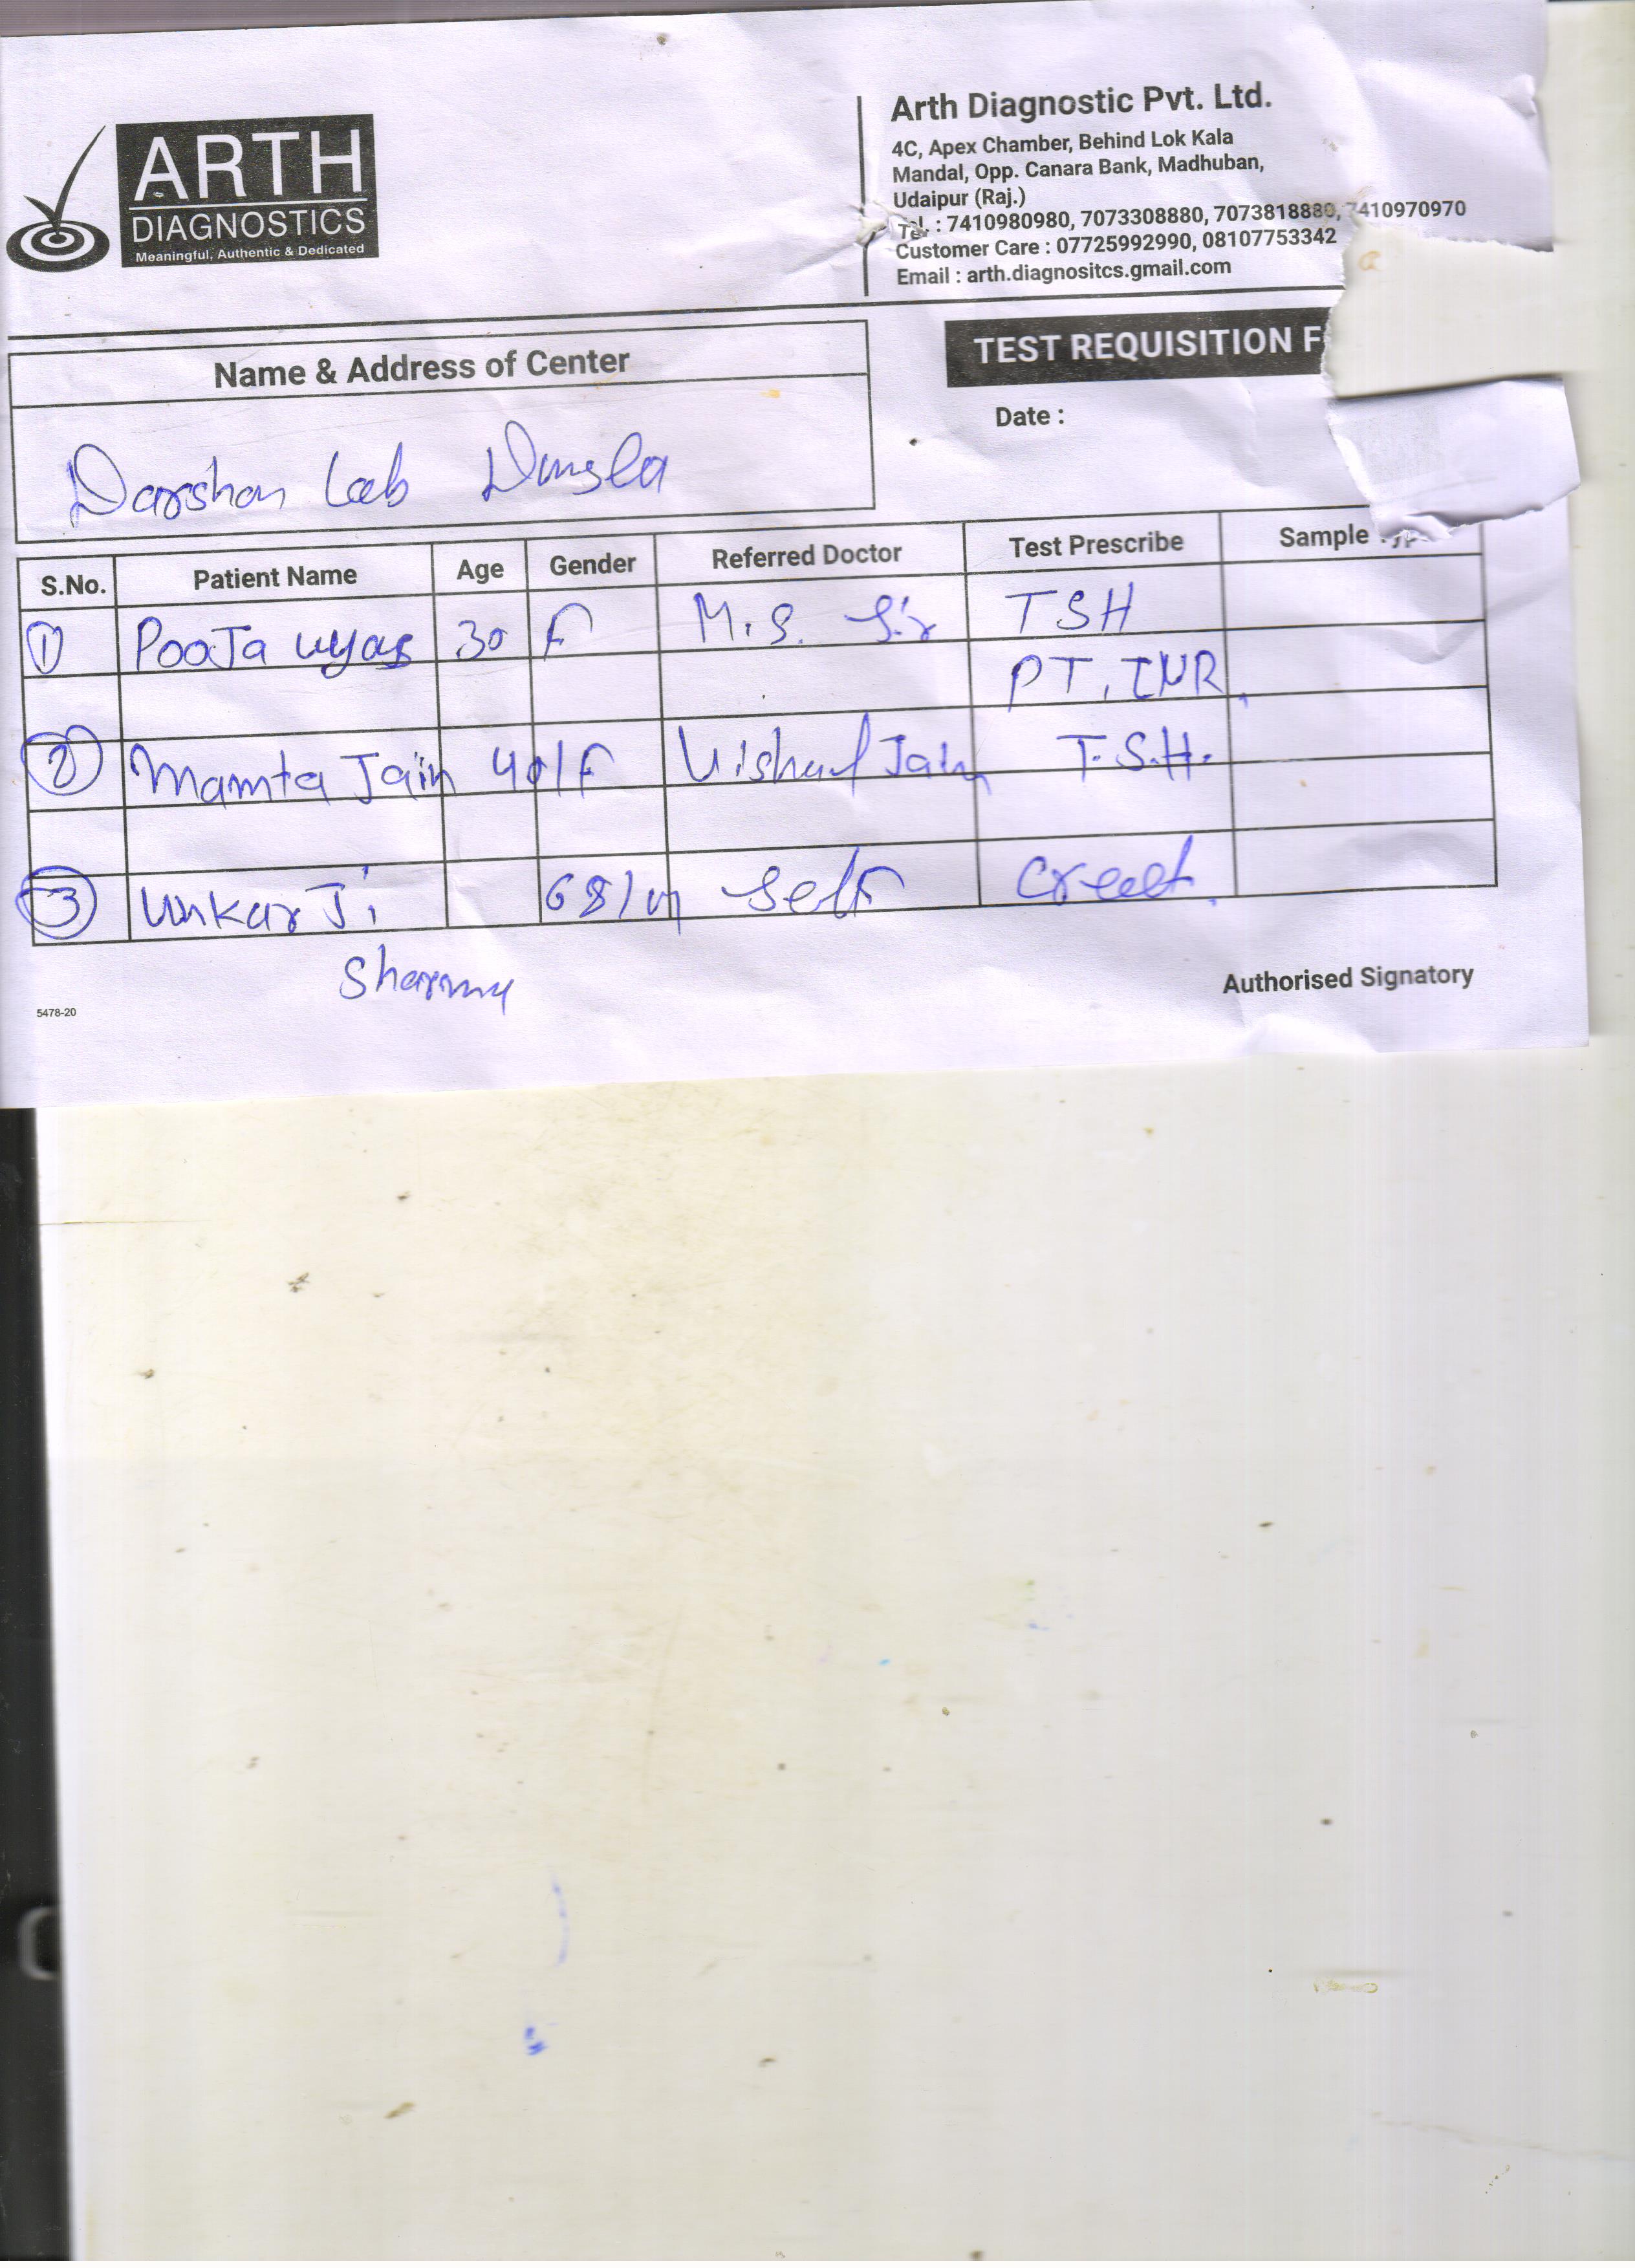 ARTH
DIAGNOSTICS
Meaningful, Authentic & Dedicated
Arth Diagnostic Pvt. Ltd.
4C, Apex Chamber, Behind Lok Kala
Mandal, Opp. Canara Bank, Madhuban,
Udaipur (Raj.)
Tel. : 7410980980, 7073308880, 7073818880, 7410970970
Customer Care : 07725992990, 08107753342
Email : arth.diagnositcs.gmail.com
Name & Address of Center
TEST REQUISITION F
Date :
Darshan Lab Dungla
S.No. Patient Name Age Gender Referred Doctor Test Prescribe Sample
1 PooJa vyas 30 F M.S. Sir TSH
PT, INR
2 Mamta Jain 40/F Vishal Jain T.S.H.
3 Unkar Ji 68/M Self Creat
Sharma
Authorised Signatory
5478-20